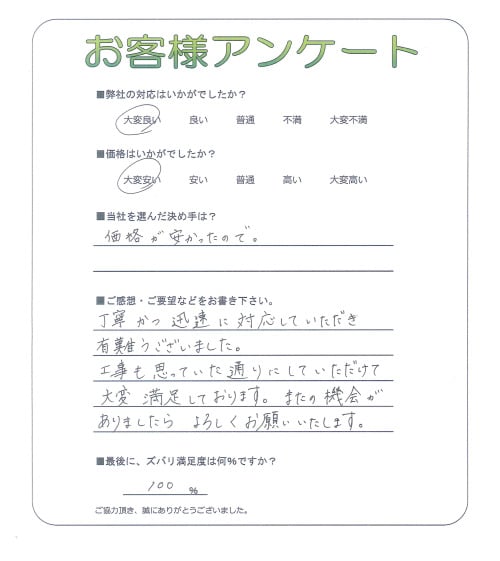 お客様アンケート
■弊社の対応はいかがでしたか？
大変良い 良い 普通 不満 大変不満
■価格はいかがでしたか？
大変安い 安い 普通 高い 大変高い
■当社を選んだ決め手は？
価格が安かったので。
■ご感想・ご要望などをお書き下さい。
丁寧かつ迅速に対応していただき
有難うございました。
工事も思っていた通りにしていただけて
大変満足しております。またの機会が
ありましたらよろしくお願いいたします。
■最後に、ズバリ満足度は何%ですか？
100 %
ご協力頂き、誠にありがとうございました。